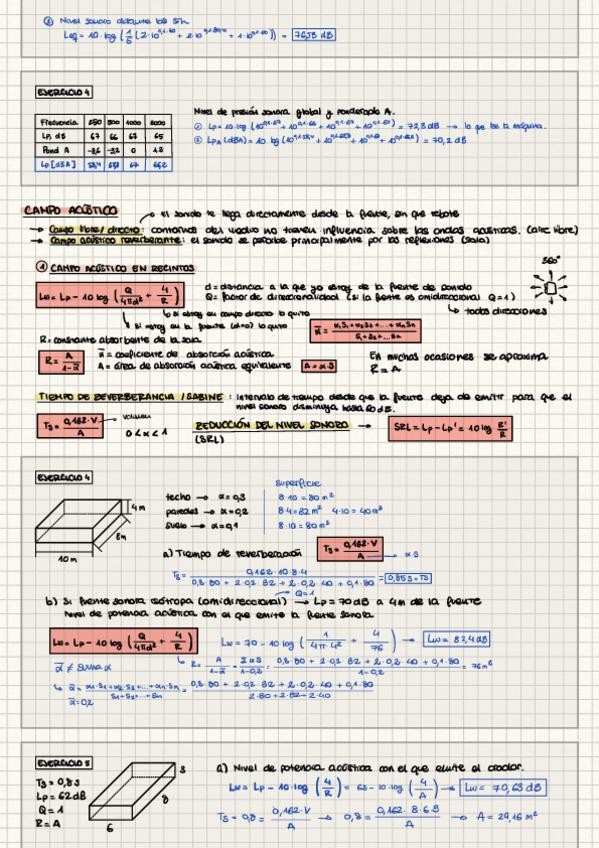 ② Nivel sonoro durante las 5h
Leq = 10·log (1/5 (2·10^0,1·80 + 2·10 + 1·10)) = 76,53 dB
EJERCICIO 4
Frecuencia 250 500 1000 2000
Lp, dB 67 66 67 65
Pond A -8,6 -3,2 0 1,2
Lp [dBA] 67 66,2
Nivel de presión sonora global y ponderado A.
① Lp = 10·log (10^0,1·67 + 10^0,1·66 + 10^0,1·67 + 10^0,1·65) = 72,3 dB → lo que da la máquina.
② LpA (dBA) = 10 log = 70,2 dB
CAMPO ACÚSTICO
el sonido te llega directamente desde la fuente, sin que rebote
→ Campo libre/directo: contornos del medio no tienen influencia sobre las ondas acústicas. (aire libre)
→ Campo acústico reverberante: el sonido se percibe principalmente por las reflexiones (Sala)
① CAMPO ACÚSTICO EN RECINTOS
360°
Lw = Lp - 10 log (Q/4πd² + 4/R)
d = distancia a la que yo estoy de la fuente de sonido
Q = factor de direccionalidad (si la fuente es omidireccional Q=1)
↳ todas direcciones
↳ si estoy en campo directo lo quito
↳ si estoy en la fuente (d=0) lo quito
ᾱ = α₁S₁+α₂S₂+...+αnSn / S₁+S₂+...Sn
R = constante absorbente de la sala
R = A/1-ᾱ
ᾱ = coeficiente de absorción acústica
A = área de absorción acústica equivalente
A = α·S
En muchas ocasiones se aproxima
R = A
TIEMPO DE REVERBERANCIA / SABINE: intervalo de tiempo desde que la fuente deja de emitir para que el
nivel sonoro disminuya hasta 60 dB.
Ts = 0,162·V/A
volumen
0<α<1
REDUCCIÓN DEL NIVEL SONORO
(SRL)
→ SRL = Lp - Lp' = 10 log R'/R
EJERCICIO 4
4m
8m
10m
superficie
techo → α=0,3 8·10 = 80 m²
paredes → α=0,2 8·4=32 m² 4·10=40 m²
suelo → α=0,1 8·10 = 80 m²
a) Tiempo de reverberación
Ts = 0,162·V/A → α·S
Ts = 0,162·10·8·4 / 0,3·80 + 2·0,2·32 + 2·0,2·40 + 0,1·80 = 0,85 s = Ts
Q=1
b) Si fuente sonora isótropa (omidireccional) → Lp = 70dB a 4m de la fuente
Nivel de potencia acústica con el que emite la fuente sonora
Lw = Lp - 10 log (Q/4πd² + 4/R)
Lw = 70 - 10 log (1/4π·4² + 4/76) → Lw = 82,4 dB
↳ R = A/1-ᾱ = ΣαS/1-0,2 = 0,3·80 + 2·0,2·32 + 2·0,2·40 + 0,1·80 / 1-0,2 = 76 m²
ᾱ ≠ suma α
↳ ᾱ = α₁·S₁+α₂·S₂+...+αn·Sn / S₁+S₂+...+Sn = 0,3·80 + 2·0,2·32 + 2·0,2·40 + 0,1·80 / 2·80+2·32+2·40
ᾱ=0,2
EJERCICIO 5
Ts = 0,8 s
Lp = 62 dB
Q = 1
R = A
3
8
6
a) Nivel de potencia acústica con el que emite el orador.
Lw = Lp - 10·log (4/R) = 62 - 10·log (4/A) → Lw = 70,63 dB
Ts = 0,8 = 0,162·V/A → 0,8 = 0,162·8·6·3/A → A = 29,16 m²